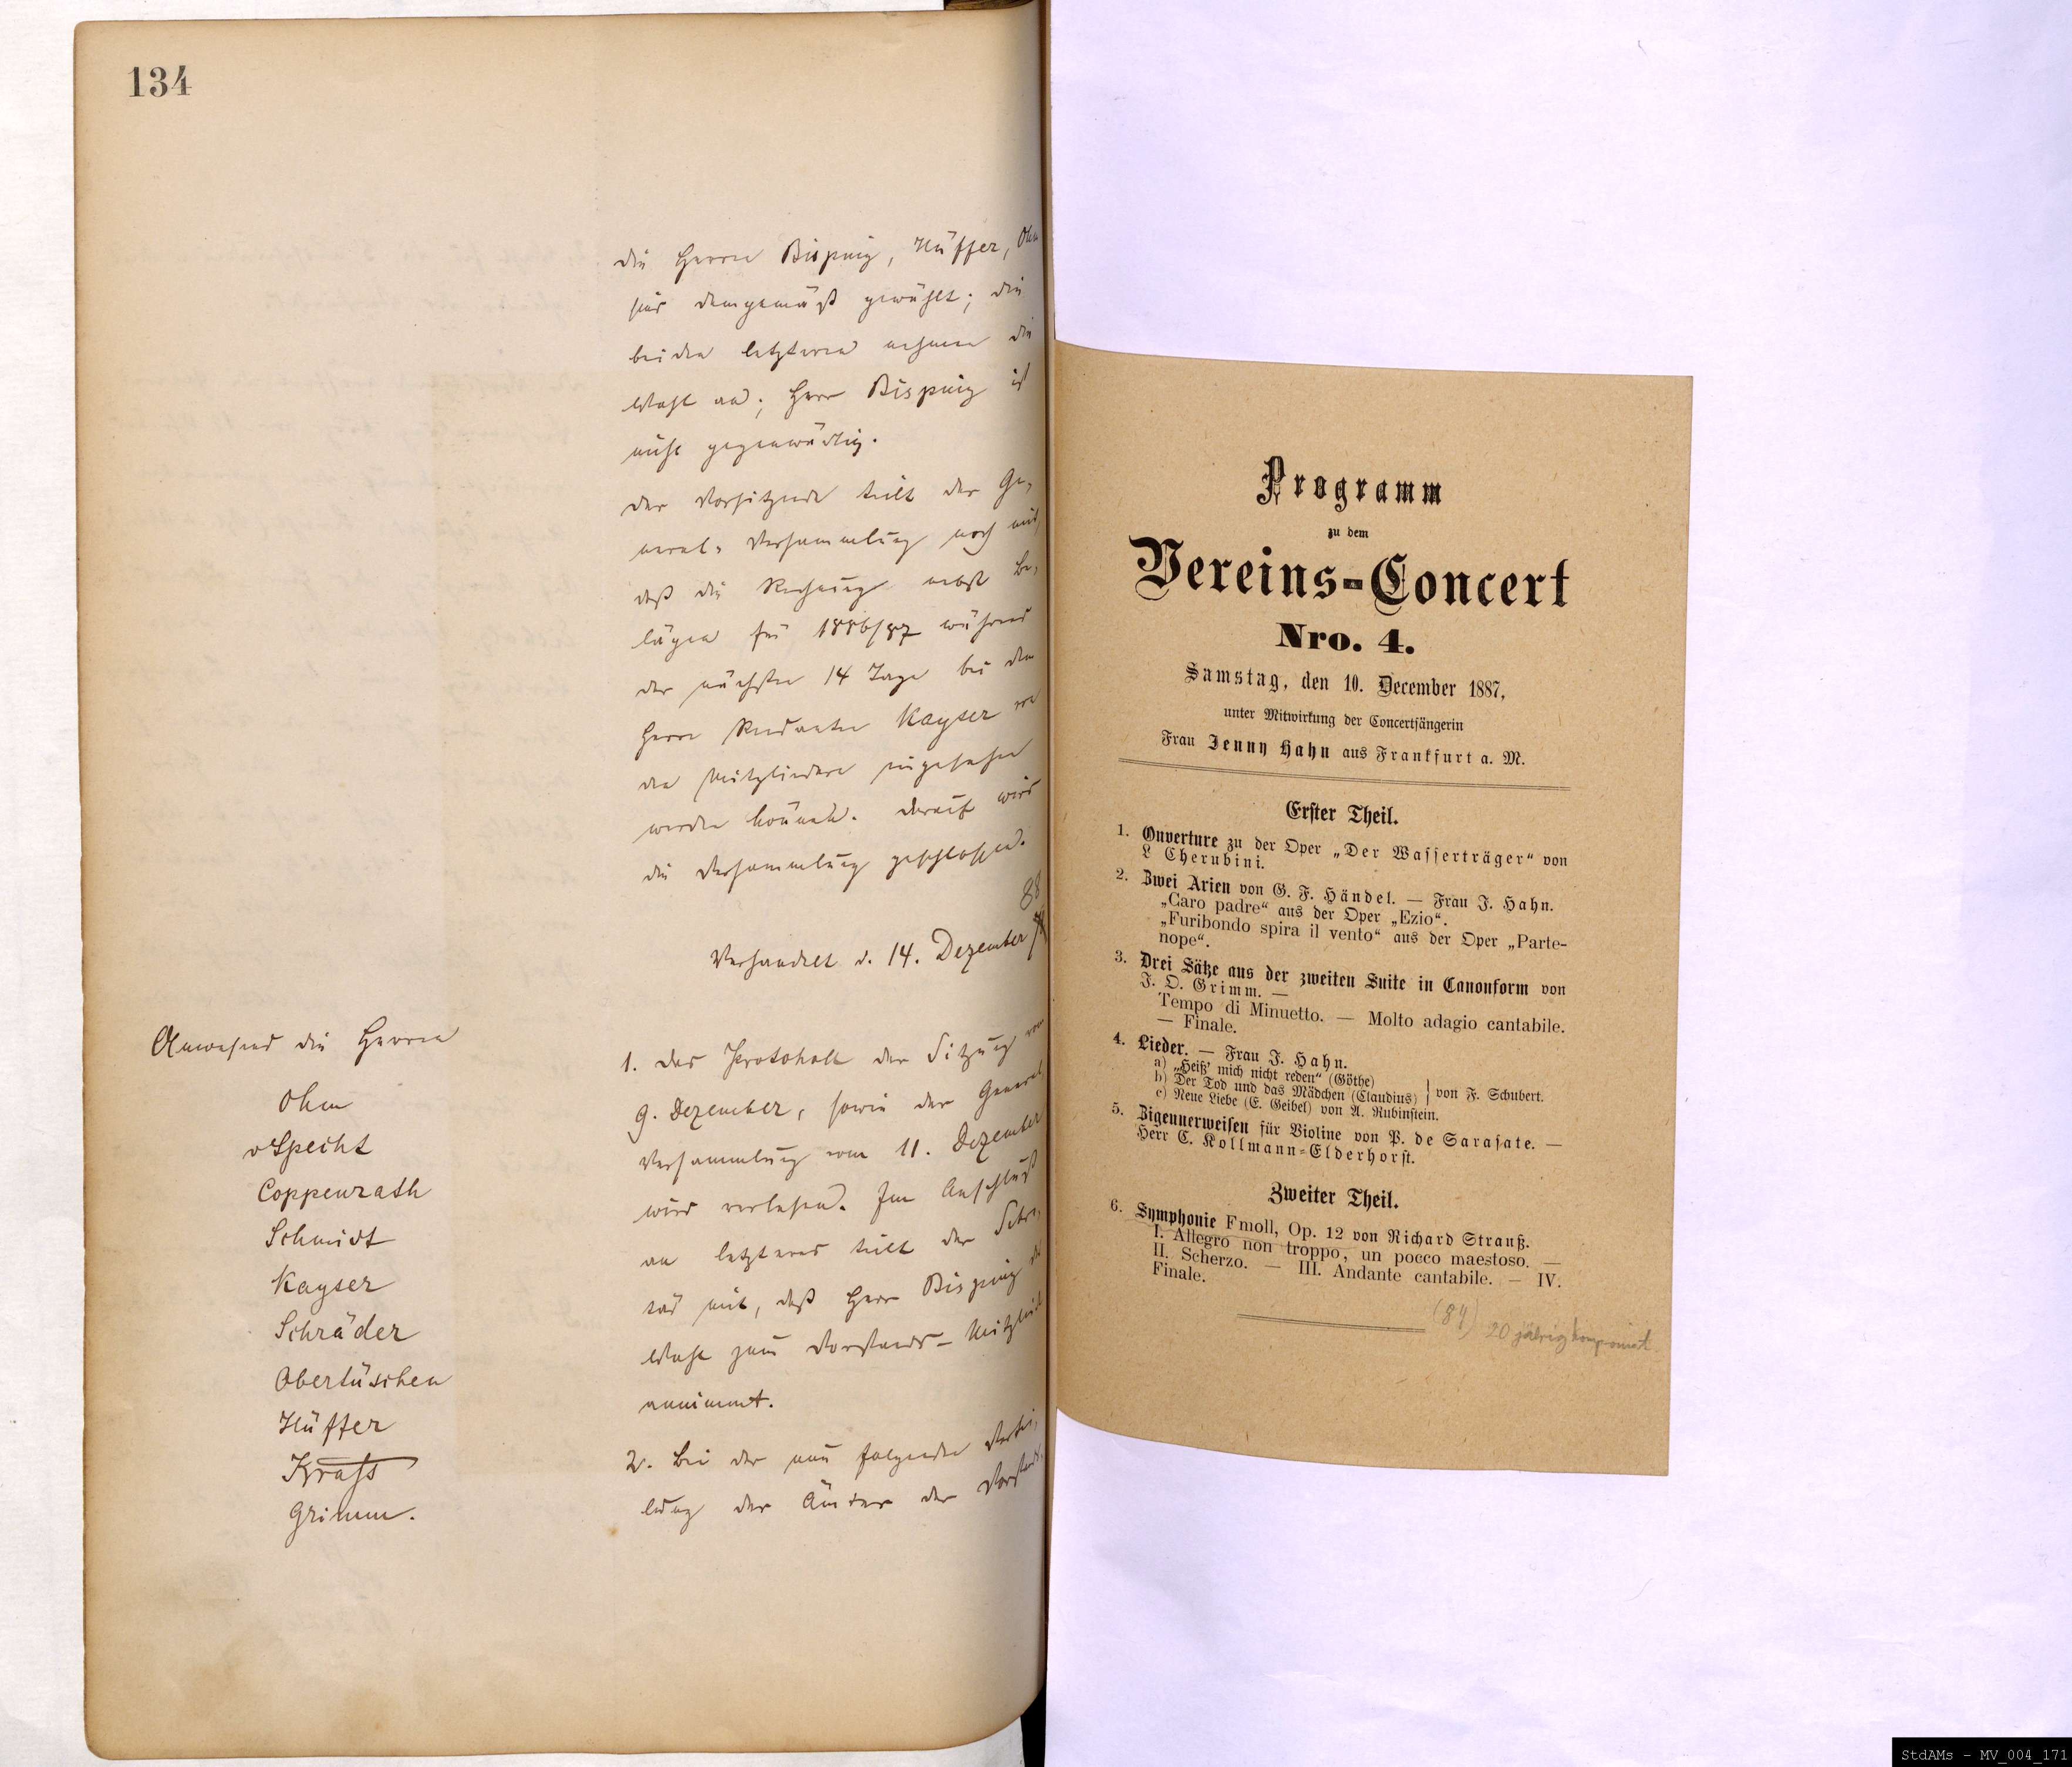 134
die Herren Bisping, Hüffer, Ohm
sind demgemäß gewählt; die
beiden letzteren nehmen die
Wahl an; Herr Bisping ist
nicht gegenwärtig.
Der Vorsitzende teilt der Ge-
neral-Versammlung noch mit,
daß die Rechnung nebst Be-
lägen für 1886/87 während
der nächsten 14 Tage bei dem
Herrn Rendanten Kayser von
den Mitgliedern eingesehen
werden können. Darauf wird
die Versammlung geschlossen.
88
Verhandelt d. 14. Dezember
Anwesend die Herren
Ohm
v Specht
Coppenrath
Schmidt
Kayser
Schräder
Obertüschen
Hüffer
Krafs
Grimm.
1. Das Protokoll der Sitzung vom
9. Dezember, sowie der General-
Versammlung vom 11. Dezember
wird verlesen. Im Anschluß
an letzteres teilt der Sekre-
tär mit, daß Herr Bisping die
Wahl zum Vorstands-Mitglied
annimmt.
2. Bei der nun folgenden Vertei-
lung der Ämter der Vorstands-
Programm
zu dem
Vereins-Concert
Nro. 4.
Samstag, den 10. December 1887,
unter Mitwirkung der Concertsängerin
Frau Jenny Hahn aus Frankfurt a. M.
Erster Theil.
1. Ouverture zu der Oper „Der Wasserträger“ von
L Cherubini.
2. Zwei Arien von G. F. Händel. — Frau J. Hahn.
„Caro padre“ aus der Oper „Ezio“.
„Furibondo spira il vento“ aus der Oper „Parte-
nope“.
3. Drei Sätze aus der zweiten Suite in Canonform von
J. O. Grimm. —
Tempo di Minuetto. — Molto adagio cantabile.
— Finale.
4. Lieder. — Frau J. Hahn.
a) „Heiß’ mich nicht reden“ (Göthe)
b) Der Tod und das Mädchen (Claudius) } von F. Schubert.
c) Neue Liebe (E. Geibel) von A. Rubinstein.
5. Zigeunerweisen für Violine von P. de Sarasate. —
Herr C. Kollmann-Elderhorst.
Zweiter Theil.
6. Symphonie Fmoll, Op. 12 von Richard Strauß.
I. Allegro non troppo, un pocco maestoso. —
II. Scherzo. — III. Andante cantabile. — IV.
Finale.
(84)
20 jährig komponiert
StdAMs - MV_004_171